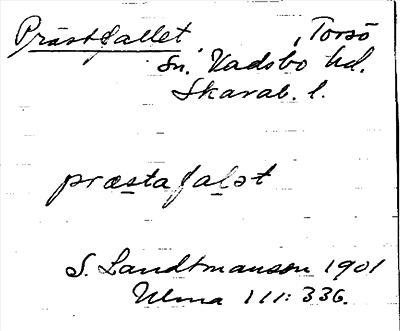 Prästfallet, Torsö
sn. Vadsbo hd.
Skarab. l.
præstafalət
S. Landtmanson 1901
Ulma 111:336.